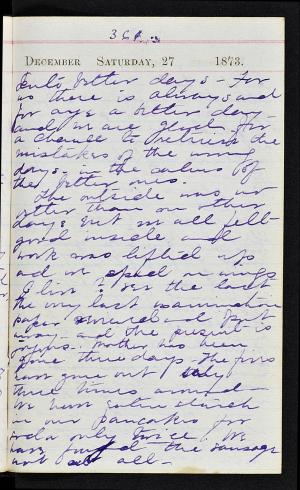 DECEMBER SATURDAY, 27 1873.
better days - For
us there is always and
for aye a better day
and we are glad for
a chance to retrieve the
mistakes of the wrong
days - in the
the better ones.
The outside was no
other than on other
days but we all felt
good inside and
work was lifted up
and we on wings
the last
the very last examination
paper and put
away - and the present is
Mother has been
gone three days - The fires
have gone out only
three times around -
We have eaten starch
in our pancakes for
soda only twice. We
have the sausage
not all -